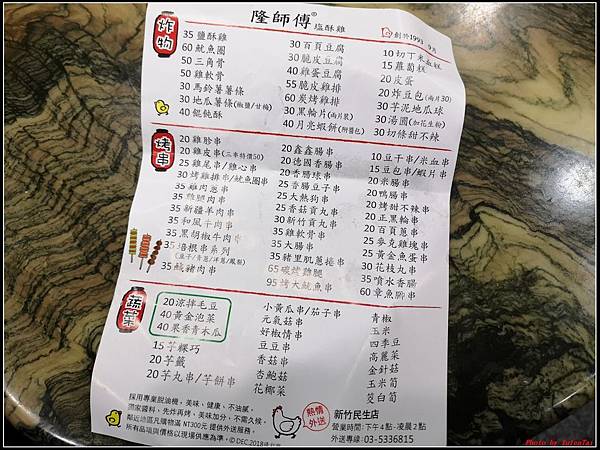 隆師傅® 塩酥雞
創於1993、9月
炸物
35 鹽酥雞
60 魷魚圈
50 三角骨
50 雞軟骨
30 馬鈴薯薯條
30 地瓜薯條(椒鹽/甘梅)
40 餛飩酥
30 百頁豆腐
30 脆皮豆腐
40 雞蛋豆腐
55 脆皮雞排
60 炭烤雞排
30 黑輪片(兩片裝)
40 月亮蝦餅(附醬包)
10 切丁米血糕
15 蘿蔔糕
20 皮蛋
20 炸豆包(兩片30)
30 芋泥地瓜球
30 湯圓(加花生粉)
30 切條甜不辣
烤串
20 雞胗串
20 雞皮串(三串特價50)
25 雞尾串/雞心串
30 烤雞排串/魷魚圈串
35 雞肉蔥串
35 雞腿肉串
35 新疆羊肉串
35 和風牛肉串
35 黑胡椒牛肉串
35 培根串系列
35 鹹豬肉串
20 鑫鑫腸串
20 德國香腸串
20 香腸球串
25 香腸豆子串
25 大熱狗串
25 香菇貢丸串
30 新竹貢丸串
35 雞軟骨串
35 大腸串
35 豬里肌蔥捲串
65 碳烤雞腿
95 烤大魷魚串
10 豆干串/米血串
15 豆包串/蝦片串
20 米腸串
20 鴨腸串
20 烤甜不辣串
20 正黑輪串
20 百頁蔥串
25 麥克雞塊串
25 黃金魚蛋串
30 花枝丸串
35 噴水香腸
60 章魚腳串
蔬菜
20 涼拌毛豆
40 黃金泡菜
40 果香青木瓜
15 芋粿巧
20 芋籤
20 芋丸串/芋餅串
小黃瓜串/茄子串
元氣菇串
好椒情串
豆豆串
香菇串
杏鮑菇
花椰菜
青椒
玉米
四季豆
高麗菜
金針菇
玉米筍
筊白筍
採用專業脫油機，美味、健康、不油膩。
獨家醬料、先炸再烤、美味加分、不需久候。
鄰近地區凡購物滿 NT300元 提供外送服務。
所有品項與價格以現場供應為準。© DEC.2018
熱情外送
新竹民生店
營業時間：下午4點-凌晨2點
外送專線：03-5336815
Photo by YuTonTai